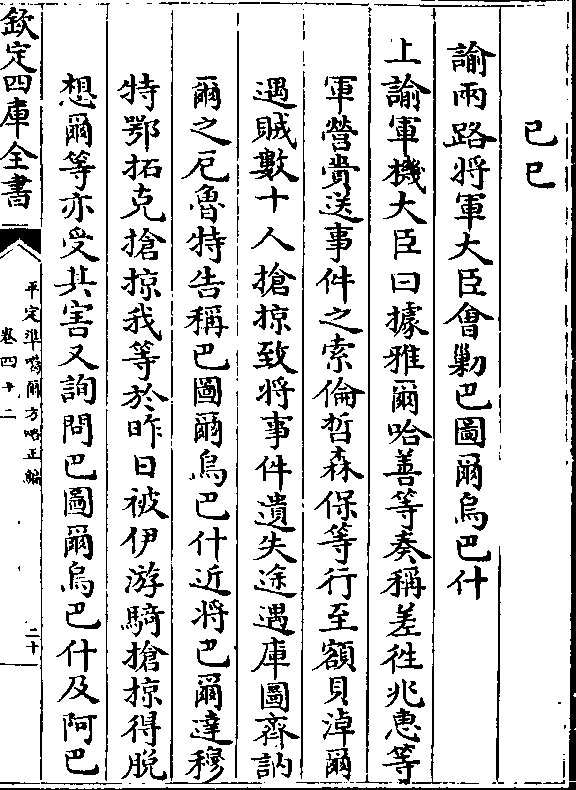 己巳
諭兩路將軍大臣會勦巴圖爾烏巴什
上諭軍機大臣曰據雅爾哈善等奏稱差徃兆惠等
軍營賫送事件之索倫哲森保等行至額貝淖爾
遇賊數十人搶掠致將事件遺失途遇庫圖齊訥
爾之厄魯特告稱巴圖爾烏巴什近將巴爾達穆
特鄂拓克搶掠我等於昨日被伊游騎搶掠得脫
想爾等亦受其害又詢問巴圖爾烏巴什及阿巴
欽定四庫全書
平定準噶爾方略正編
卷四十二
二十